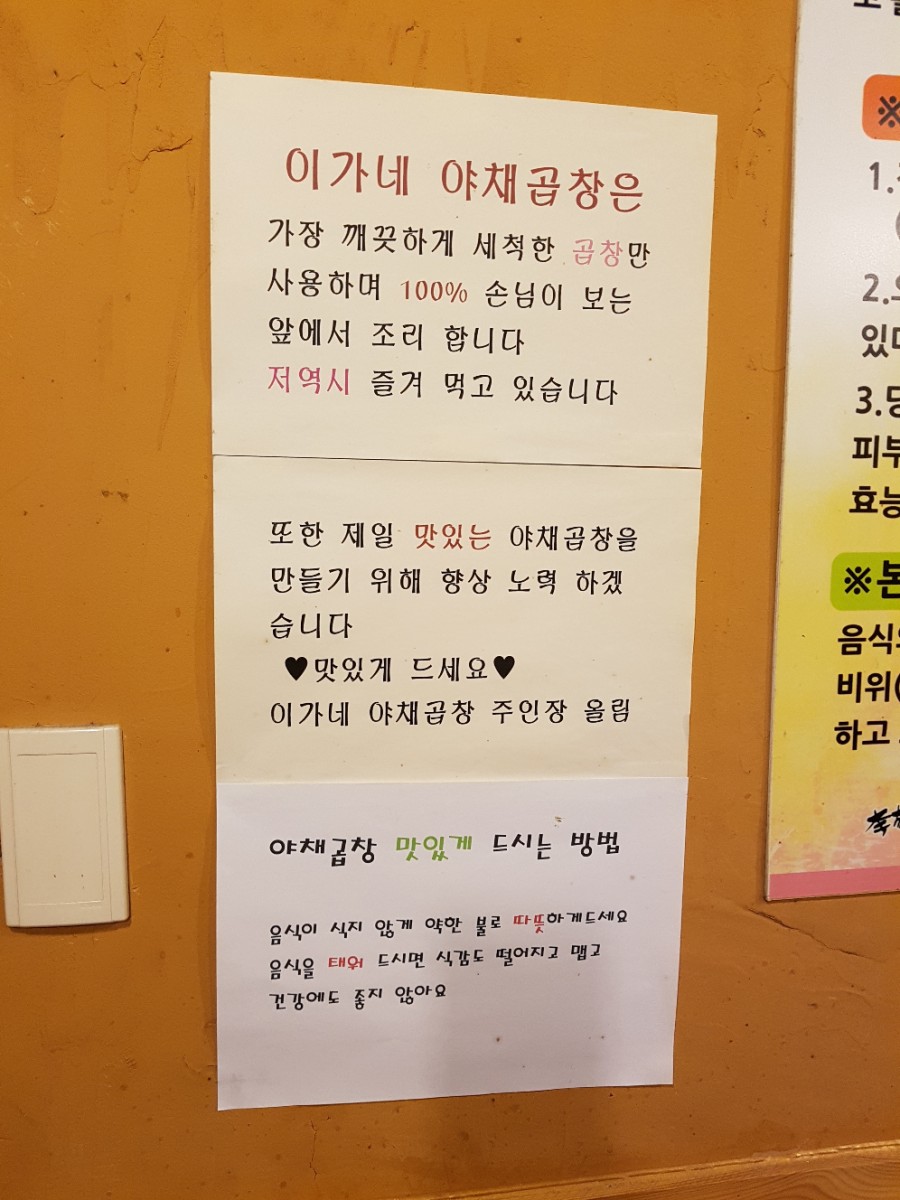 이가네 야채곱창은
가장 깨끗하게 세척한 곱창만
사용하며 100% 손님이 보는
앞에서 조리 합니다
저역시 즐겨 먹고 있습니다
또한 제일 맛있는 야채곱창을
만들기 위해 향상 노력 하겠
습니다
♥맛있게 드세요♥
이가네 야채곱창 주인장 올림
야채곱창 맛있게 드시는 방법
음식이 식지 않게 약한 불로 따뜻하게드세요
음식을 태워 드시면 식감도 떨어지고 맵고
건강에도 좋지 않아요
※
1.
2.
있
3.
피부
효능
※본
음식
비위(
하고